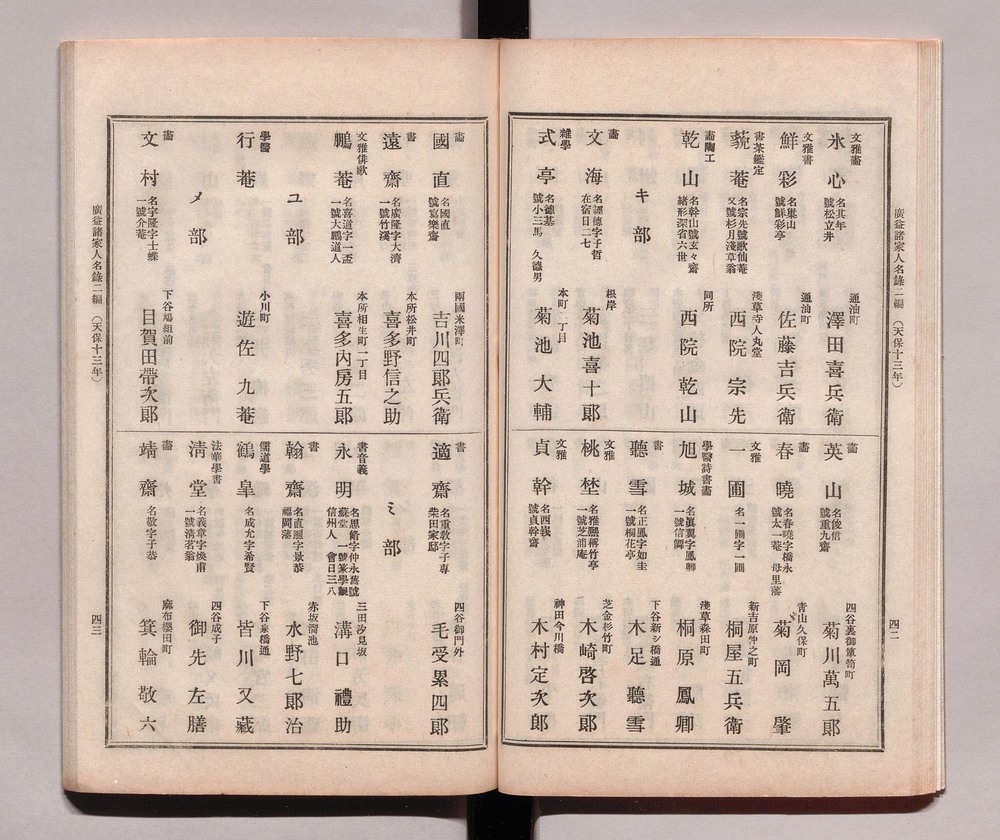 廣益諸家人名錄二編　（天保十三年）
四二
文雅畫
氷心
名其年
號松立井
通油町
澤田喜兵衛
文雅書
鮮彩
名巣山
號鮮彩亭
通油町
佐藤吉兵衛
書茶鑑定
藐菴
名宗先號歌仙菴
又號杉月淺草翁
淺草寺人丸堂
西院宗先
畫陶工
乾山
名幹山號玄々齋
緒形深省六世
同所
西院乾山
キ部
畫
文海
名譚德字子哲
在宿日二七
根岸
菊池喜十郎
雜學
式亭
名德基
號小三馬　久德男
本町二丁目
菊池大輔
畫
英山
名俊信
號重九齋
四谷裏御簞笥町
菊川萬五郎
畫
春曉
名春曉字橋永
號太一菴　母里藩
青山久保町
菊岡肇
文雅
一圃
名一圃字一圃
新吉原仲之町
桐屋五兵衛
學醫詩書畫
旭城
名眞翼字鳳卿
一號信籟
淺草森田町
桐原鳳卿
書
聽雪
名正鳳字如圭
一號桐花亭
下谷新シ橋通
木足聽雪
文雅
桃埜
名雅熈稱竹亭
一號芝浦庵
芝金杉竹町
木崎啓次郎
文雅
貞幹
號貞幹齋
神田今川橋
木村定次郎
畫
國直
名國直
號寫樂齋
兩國米澤町
吉川四郎兵衛
書
遠齋
名廣隆字大濟
一號竹溪
本所松井町
喜多野信之助
文雅俳歌
鵬菴
名喜道字一盃
一號大鵬道人
本所相生町一丁目
喜多內房五郎
ユ部
學醫
行菴
小川町
遊佐九菴
メ部
畫
文村
名字隆字士蝶
一號介菴
下谷鳩組前
目賀田帶次郎
書
適齋
名重敎字子專
柴田家邸
四谷御門外
毛受累四郎
ミ部
書音義
永明
名思脩字仲永舊號
蘇堂　一號篆學䵺
信州人　會日三八
三田汐見坂
溝口禮助
書
翰齋
名直溫字景恭
福岡藩
赤坂溜池
水野七郎治
儒道學
鶴皐
名成允字希賢
下谷泉橋通
皆川又藏
法華學書
淸堂
名義章字煥甫
一號淸茗翁
四谷成子
御先左膳
畫
靖齋
名敬字子恭
麻布櫻田町
箕輪敬六
廣益諸家人名錄二編　（天保十三年）
四三